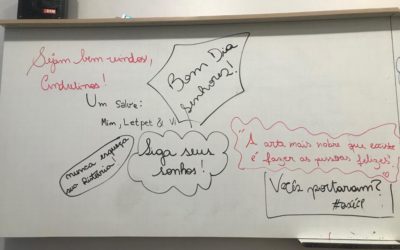 Sejam bem-vindos,
Bom Dia
Senhores!
Um Salve:
Mim, Letpet & Vi
nunca esqueça
sua história!
Siga seus
sonhos!
"A arte mais nobre que existe
é fazer as pessoas felizes".
Vocês